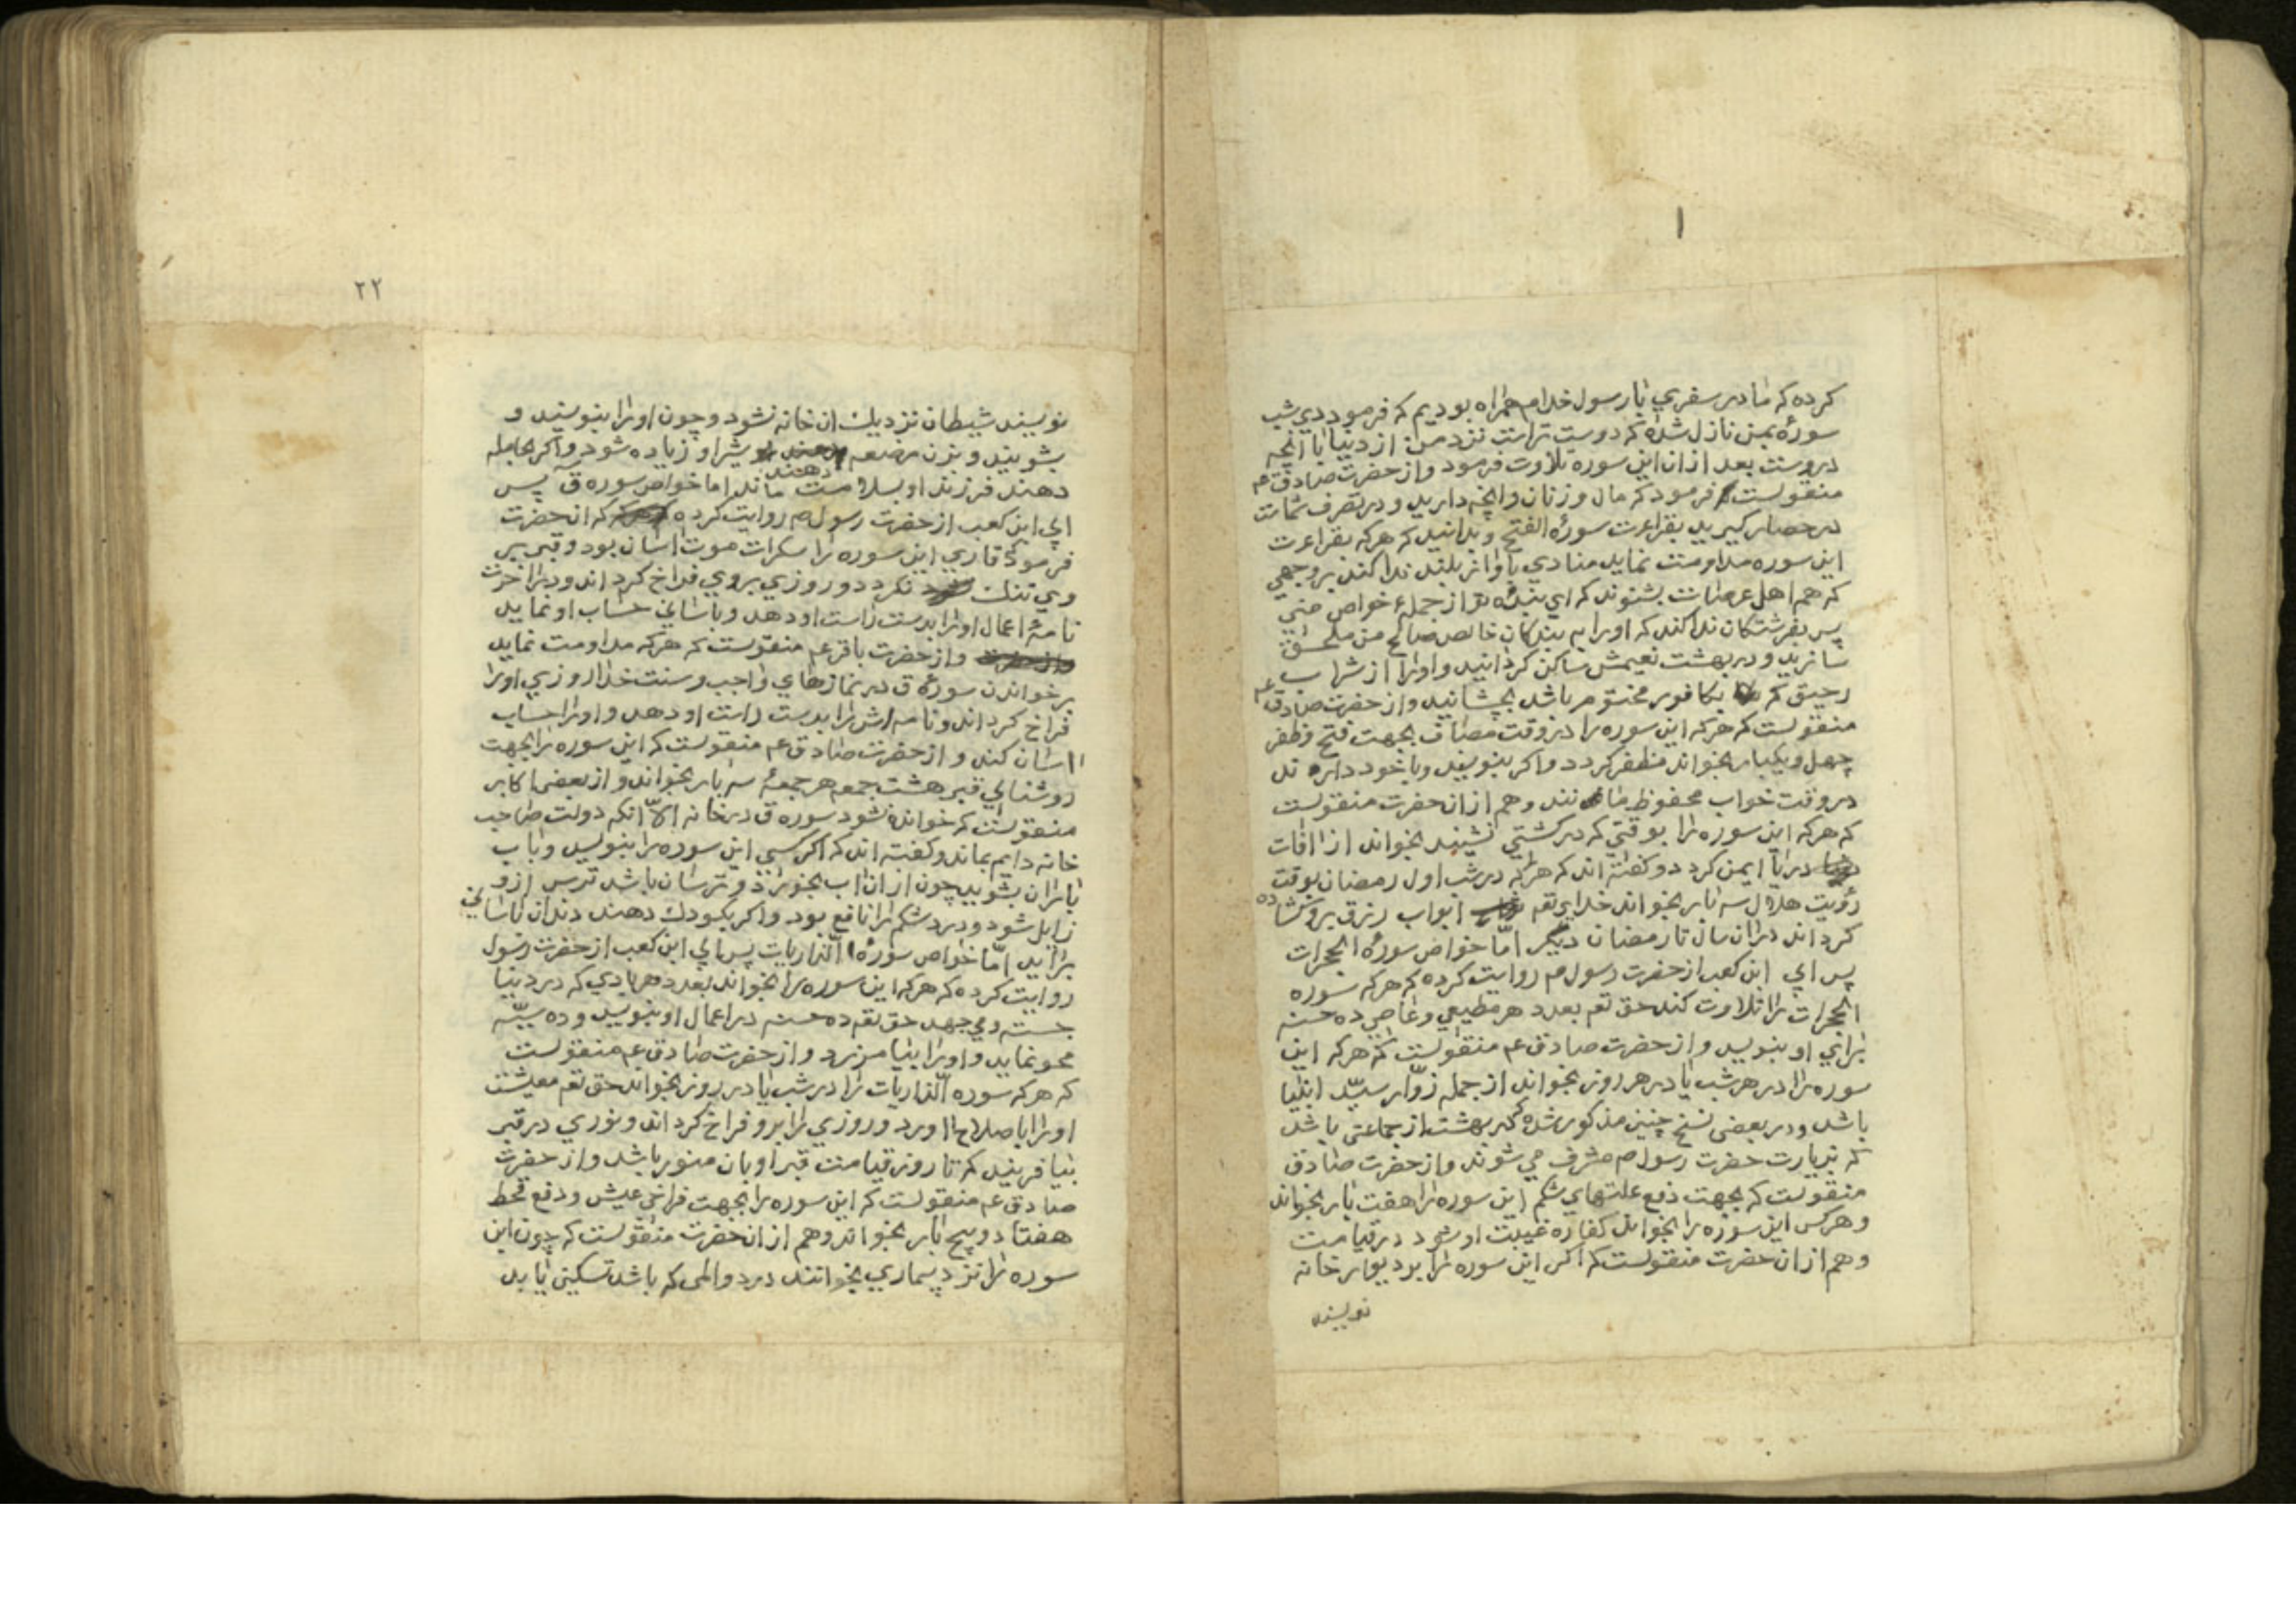 کرده که ما در سفری با رسول خدا م همراه بودیم که فرمود دی شب
سورهٔ بمن نازل شده که دوست تراست نزد من از دنیا با انچه
دروست بعد ازان این سوره تلاوت فرمود و از حضرت صادق عم
منقولست فرمود که مال و زنان و انچه دارید و در تصرف شماست
در حصار کیرید بقراءت سورهٔ الفتح و بدانید که هرکه بقراءت
این سوره مداومت نماید منادی باواز بلند ندا کند بر وجهی
که هم اهل عرصات بشنوند که ای بنده تو از جملهٔ خواص منی
پس بفرشتکان ندا کند که اورا به بندکان خالص صالح من ملحق
سازید و در بهشت نعیمش ساکن کردانید و اورا از شراب
رحیق که بکافور مختوم باشد بچشانید و از حضرت صادق عم
منقولست که هرکه این سوره را در وقت مصاف بجهت فتح و ظفر
چهل و یکبار بخواند مظفر کردد و اکر بنویسد و با خود دارد
در وقت خواب محفوظ ماند و هم ازان حضرت منقولست
که هرکه این سوره را بوقتی که در کشتی نشیند بخواند از افات
دریا ایمن کردد و کفته اند که هرکه در شب اول رمضان بوقت
رؤیت هلال سه بار بخواند خدای تعم ابواب رزق برو کشاده
کرداند دران سال تا رمضان دیگر امّا خواص سورهٔ الحجرات
پس ابی ابن کعب از حضرت رسول م روایت کرده که هرکه سوره
الحجرات را تلاوت کند حق تعم بعدد هر مطیعی و عاصی ده حسنه
برای او بنویسد و از حضرت صادق عم منقولست که هرکه این
سوره را در هر شب یا در هر روز بخواند از جمله زوّار سیّد انبیا
باشد و در بعضی نسخ چنین مذکور شده که در بهشت از جماعتی باشد
که بزیارت حضرت رسول م مشرف می شوند و از حضرت صادق
منقولست که بجهت دفع علتهای شکم این سوره را هفت بار بخواند
و هرکس این سوره را بخواند کفاره غیبت او شود در قیامت
و هم ازان حضرت منقولست که اکر این سوره را بر دیوار خانه
نویسند
۲۲
نویسند شیطان نزدیک ان خانه نشود و چون اورا بنویسند و
بشویند و بزن مرضعه دهند شیر او زیاده شود و اکر بحامله
دهند فرزند او بسلامت ماند اما خواص سوره ق پس
ابی ابن کعب از حضرت رسول م روایت کرده که ان حضرت
فرمود که قاری این سوره را سکرات موت اسان بود و قبر بر
وی تنک نکردد و روزی بروی فراخ کرداند و در اخرت
نامهٔ اعمال اورا بدست راست او دهد و باسانی حساب او نماید
و از حضرت باقر عم منقولست که هرکه مداومت نماید
برخواندن سورهٔ ق در نمازهای واجب و سنت خدا روزی اورا
فراخ کرداند و نامه اش را بدست راست او دهد و اورا حساب
اسان کند و از حضرت صادق عم منقولست که این سوره را بجهت
روشنای قبر هشت جمعه هر جمعهٔ سه بار بخواند و از بعضی اکابر
منقولست که خوانده نشود سوره ق در خانه الاّ انکه دولت صاحب
خانه دایم بماند و کفته اند که اکر کسی این سوره را بنویسد و باب
باران بشوید چون ازان اب بخورد و ترسان باشد ترس ازو
زایل شود و درد شکم را نافع بود و اکر بکودک دهند دندان باسانی
براید امّا خواص سورهٔ الذاریات پس ابی ابن کعب از حضرت رسول
روایت کرده که هرکه این سوره را بخواند بعدد هر بادی که در دنیا
جسته و می جهد حق تعم ده حسنه در اعمال او بنویسد و ده سیّئه
محو نماید و اورا بیامرزد و از حضرت صادق عم منقولست
که هرکه سوره الذاریات را در شب یا در روز بخواند حق تعم معیشت
اورا باصلاح اورد و روزی را برو فراخ کرداند و نوری در قبر
بیافریند که تا روز قیامت قبر او بان منور باشد و از حضرت
صادق عم منقولست که این سوره را بجهت فراخی عیش و دفع قحط
هفتاد و پنج بار بخواند و هم ازان حضرت منقولست که چون این
سوره را نزد بیماری بخوانند درد و المی که باشد تسکین یابد